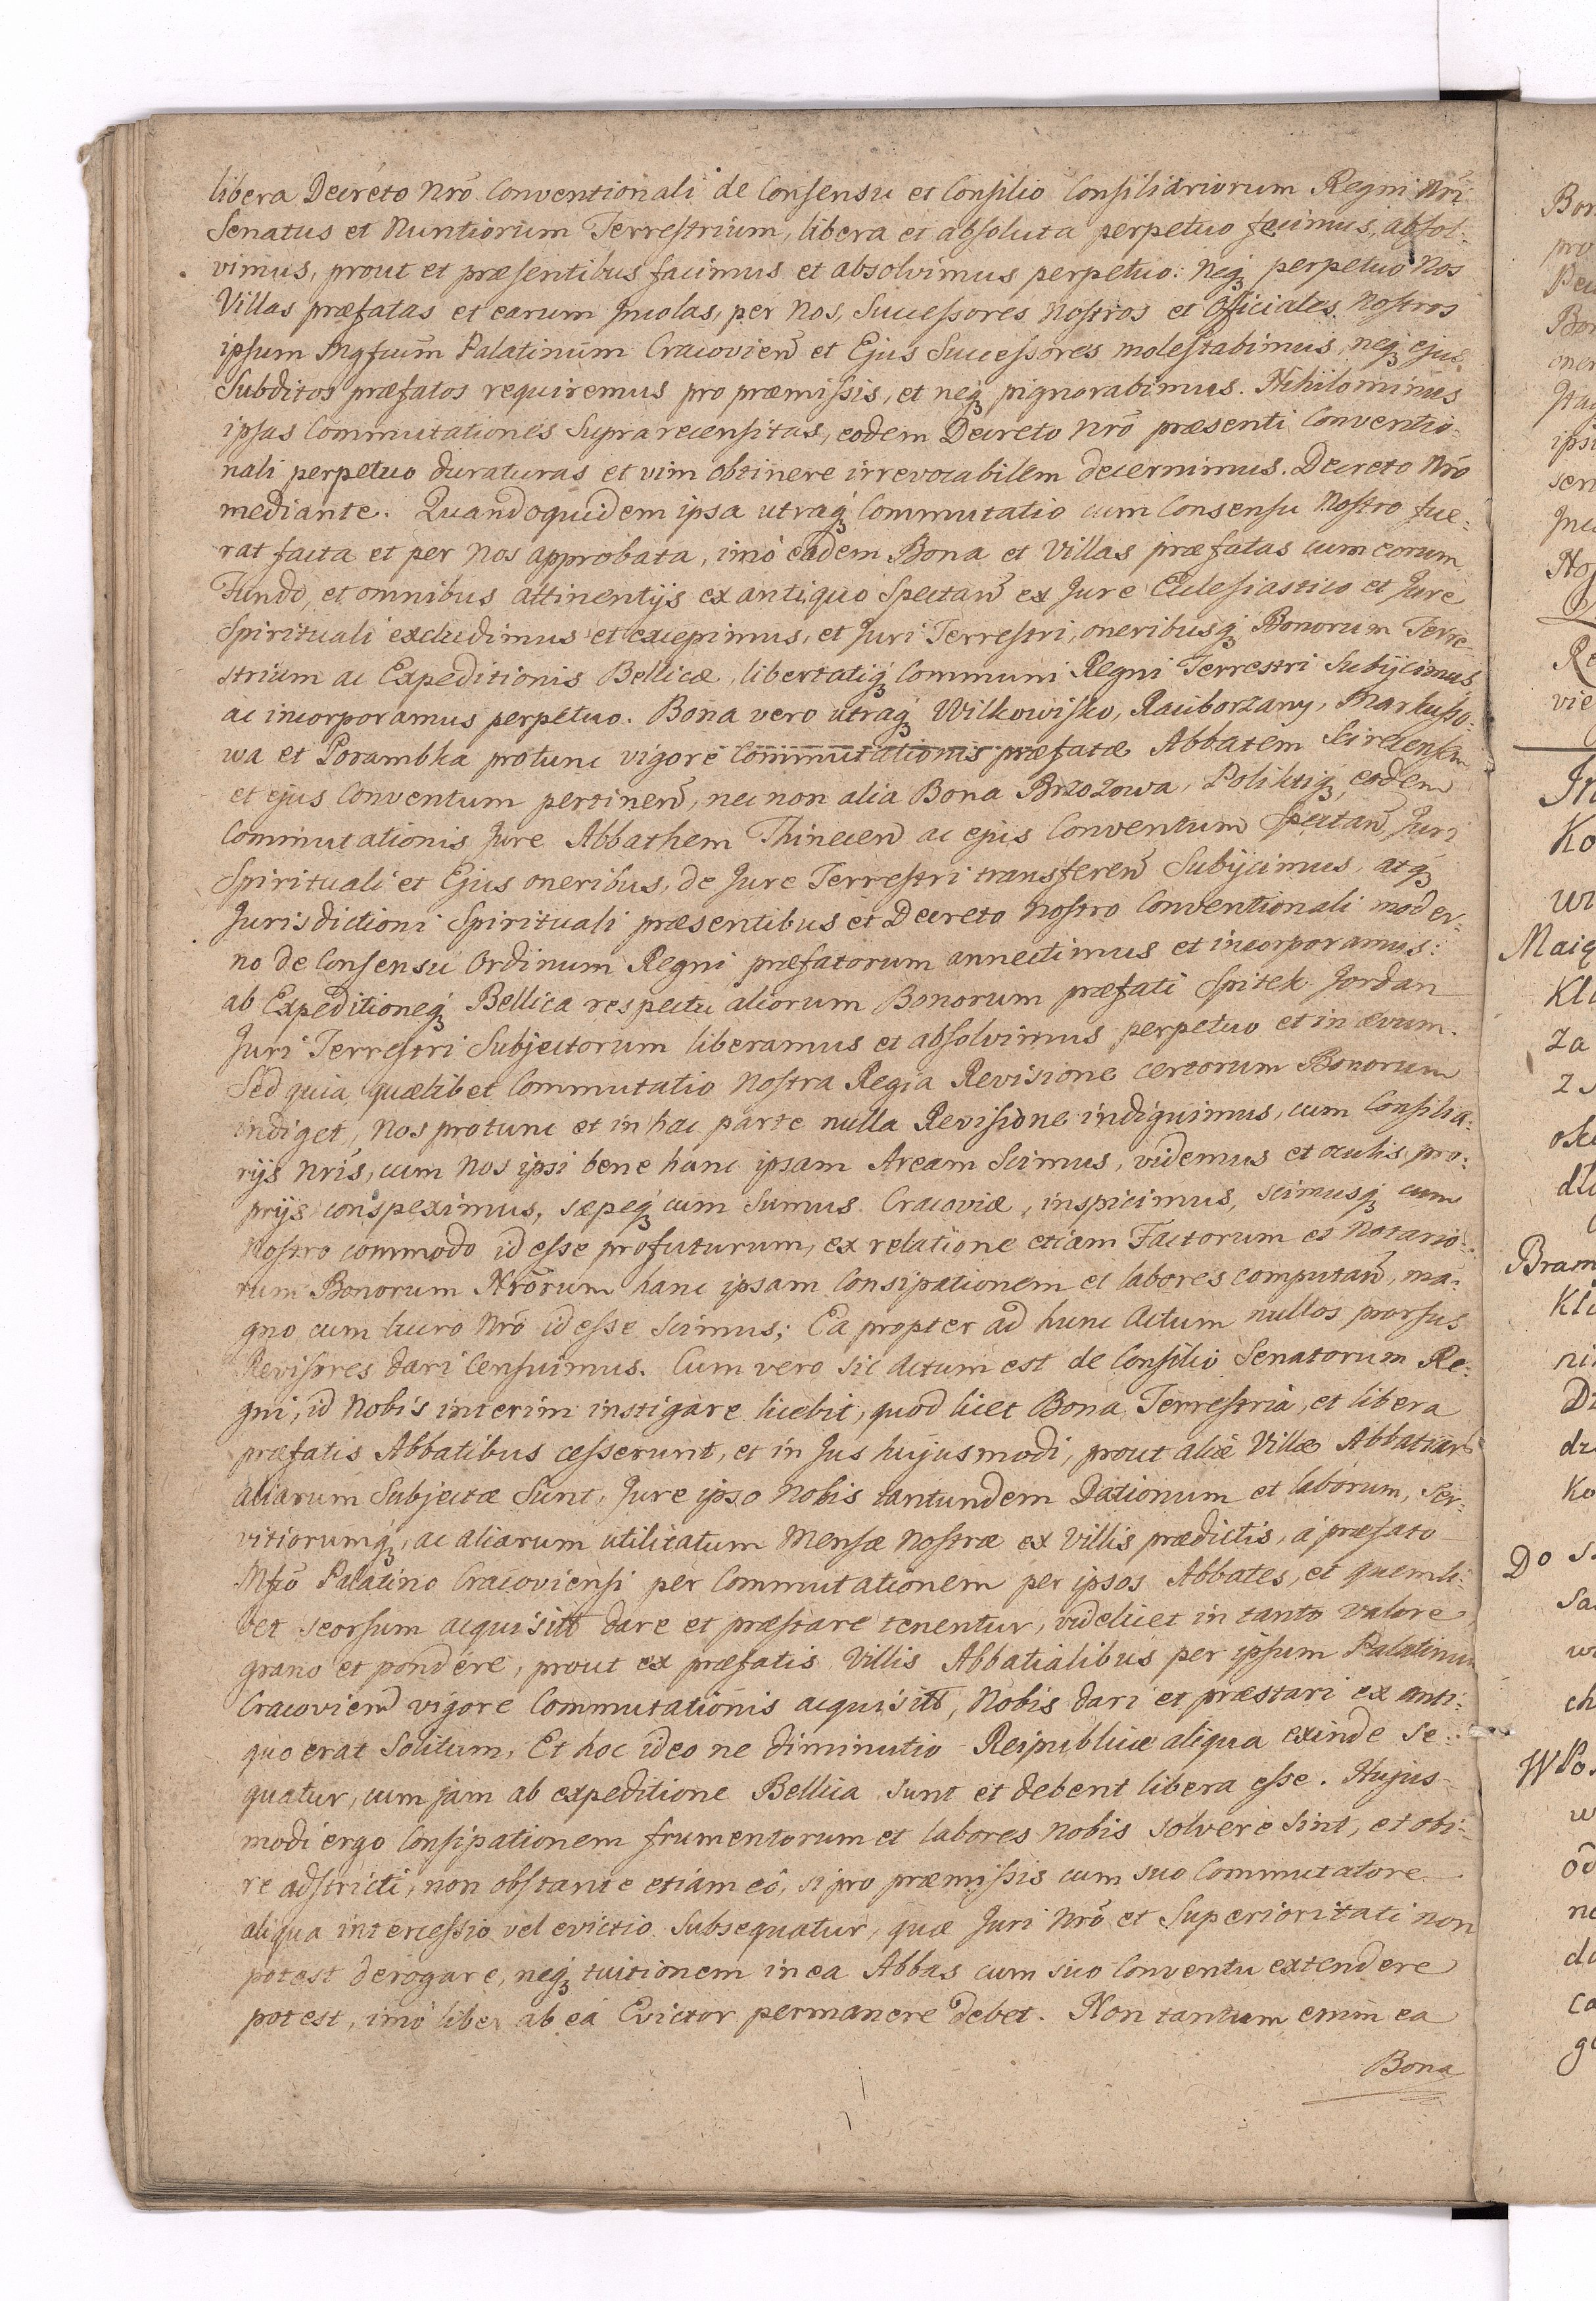 libera Decreto Nrõ Conventionali de Consensu et Consilio Consiliariorum Regni Nri
Senatus et Nuntiorum Terrestrium, libera et absoluta perpetuo fecimus, absol-
vimus, prout et præsentibus facimus et absolvimus perpetuo: neq3 perpetuo Nos
Villas præfatas et earum Incolas, per Nos, Successores Nostros et Officiales Nostros
ipsum Mgfcum Palatinum Cracovieñ et Ejus Successores molestabimus, neq3 ejus
Subditos præfatos requiremus pro præmissis, et neq3 pignorabimus. Nihilominus
ipsas Commutationes Suprarecensitas, eodem Decreto Nrõ præsenti Conventio-
nali perpetuo duraturas et vim obtinere irrevocabilem decernimus. Decreto Nrõ
mediante. Quandoquidem ipsa utraq3 Commutatio cum Consensu Nostro fue:
rat facta et per Nos approbata, imò eadem Bona et Villas præfatas cum eorum
Fundo, et omnibus attinentijs ex antiquo Spectañ ex Jure Ecclesiastico et Jure
Spirituali excludimus et excepimus, et Juri Terrestri, oneribusq3 Bonorum Terre-
strium ac Expeditionis Bellicæ, libertatiq3 Communi Regni Terrestri Subijcimus
ac incorporamus perpetuo. Bona vero utraq3 Wilkowisko, Raciborzany, Markusso-
wa et Porambka protunc vigore Commutationis præfatæ Abbatem Scirecensem
et ejus Conventum pertineñ, nec non alia Bona Brzozowa, Poliktiq3, eodem
Commutationis Jure Abbathem Thineceñ ac ejus Conventum Spectañ, Juri
Spirituali et Ejus oneribus, de Jure Terrestri transfereñ Subijcimus, atq3
Jurisdictioni Spirituali præsentibus et Decreto Nostro Conventionali moder-
no de Consensu Ordinum Regni præfatorum annectimus et incorporamus:
ab Expeditioneq3 Bellica respectu aliorum Bonorum præfati Spitek Jordan
Juri Terrestri Subjectorum liberamus et absolvimus perpetuo et in ævum.
Sed quia quælibet Commutatio Nostra Regia Revisione certorum Bonorum
indiget, Nos protunc et in hac parte nulla Revisione indiguimus, cum Consilia:
rijs Nris, cum Nos ipsi bene hanc ipsam Aream Scimus, videmus et oculis pro:
prijs conspeximus, sæpeq3 cum Sumus Cracoviæ, inspicimus, scimusq3 cum
Nostro commodo id esse profuturum, ex relatione etiam Factorum et Notario:
rum Bonorum Nrõrum hanc ipsam Consipationem et labores computañ, ma:
gno cum lucro Nrõ id esse Scimus; Ea propter ad hunc Actum nullos prorsus
Revisores dari Censuimus. Cum vero sic Actum est de Consilio Senatorum Re:
gni, id Nobis interim instigare licebit, quod licet Bona Terrestria, et libera
præfatis Abbatibus cesserunt, et in Jus hujusmodi, prout aliæ Villæ Abbatiarũ
aliarum Subjectæ Sunt, Jure ipso Nobis tantundem Dationum et laborum, Ser:
vitiorumq3, ac aliarum utilitatum Mensæ Nostræ ex Villis prædictis, á præfato
Mfcõ Palatino Cracoviensi per Commutationem per ipsos Abbates, et quemli:
bet seorsum acquisitt dare et præstare tenentur, videlicet in tanto valore
grano et pondere, prout ex præfatis Villis Abbatialibus per ipsum Palatinum
Cracovieñ vigore Commutationis acquisitt, Nobis dari et præstari ex anti:
quo erat Solitum, Et hoc ideo ne diminutio Reipublicæ aliqua exinde Se:
quatur, cum jam ab expeditione Bellica Sunt et debent libera esse. Hujus-
modi ergo Consipationem frumentorum et labores nobis solvere Sint, et obi:
re adstricti, non obstante etiam eô, si pro præmissis cum suo Commutatore
aliqua intercessio vel evictio Subsequatur, quæ Juri Nrõ et Superioritati non
potest derogare, neq3 tuitionem in ea Abbas cum suo Conventu extendere
potest, imò liber ab eá Evictor permanere debet. Non tantum enim ea
Bona